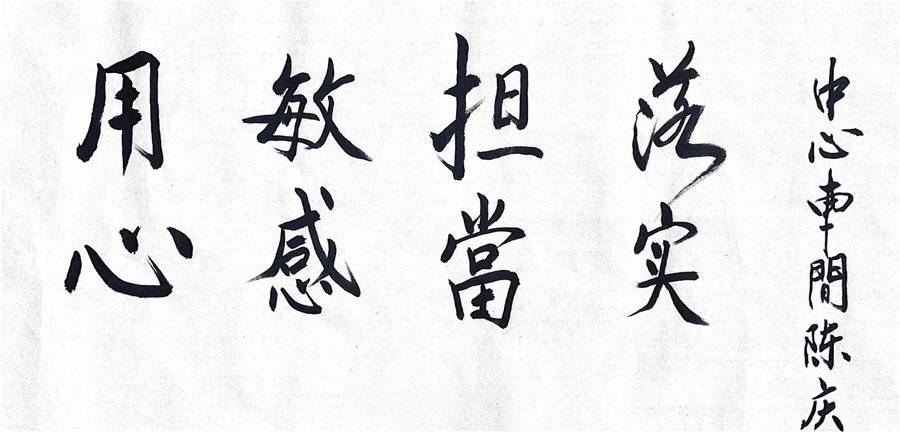 用心
敏感
担當
落实
中心車間陈庆